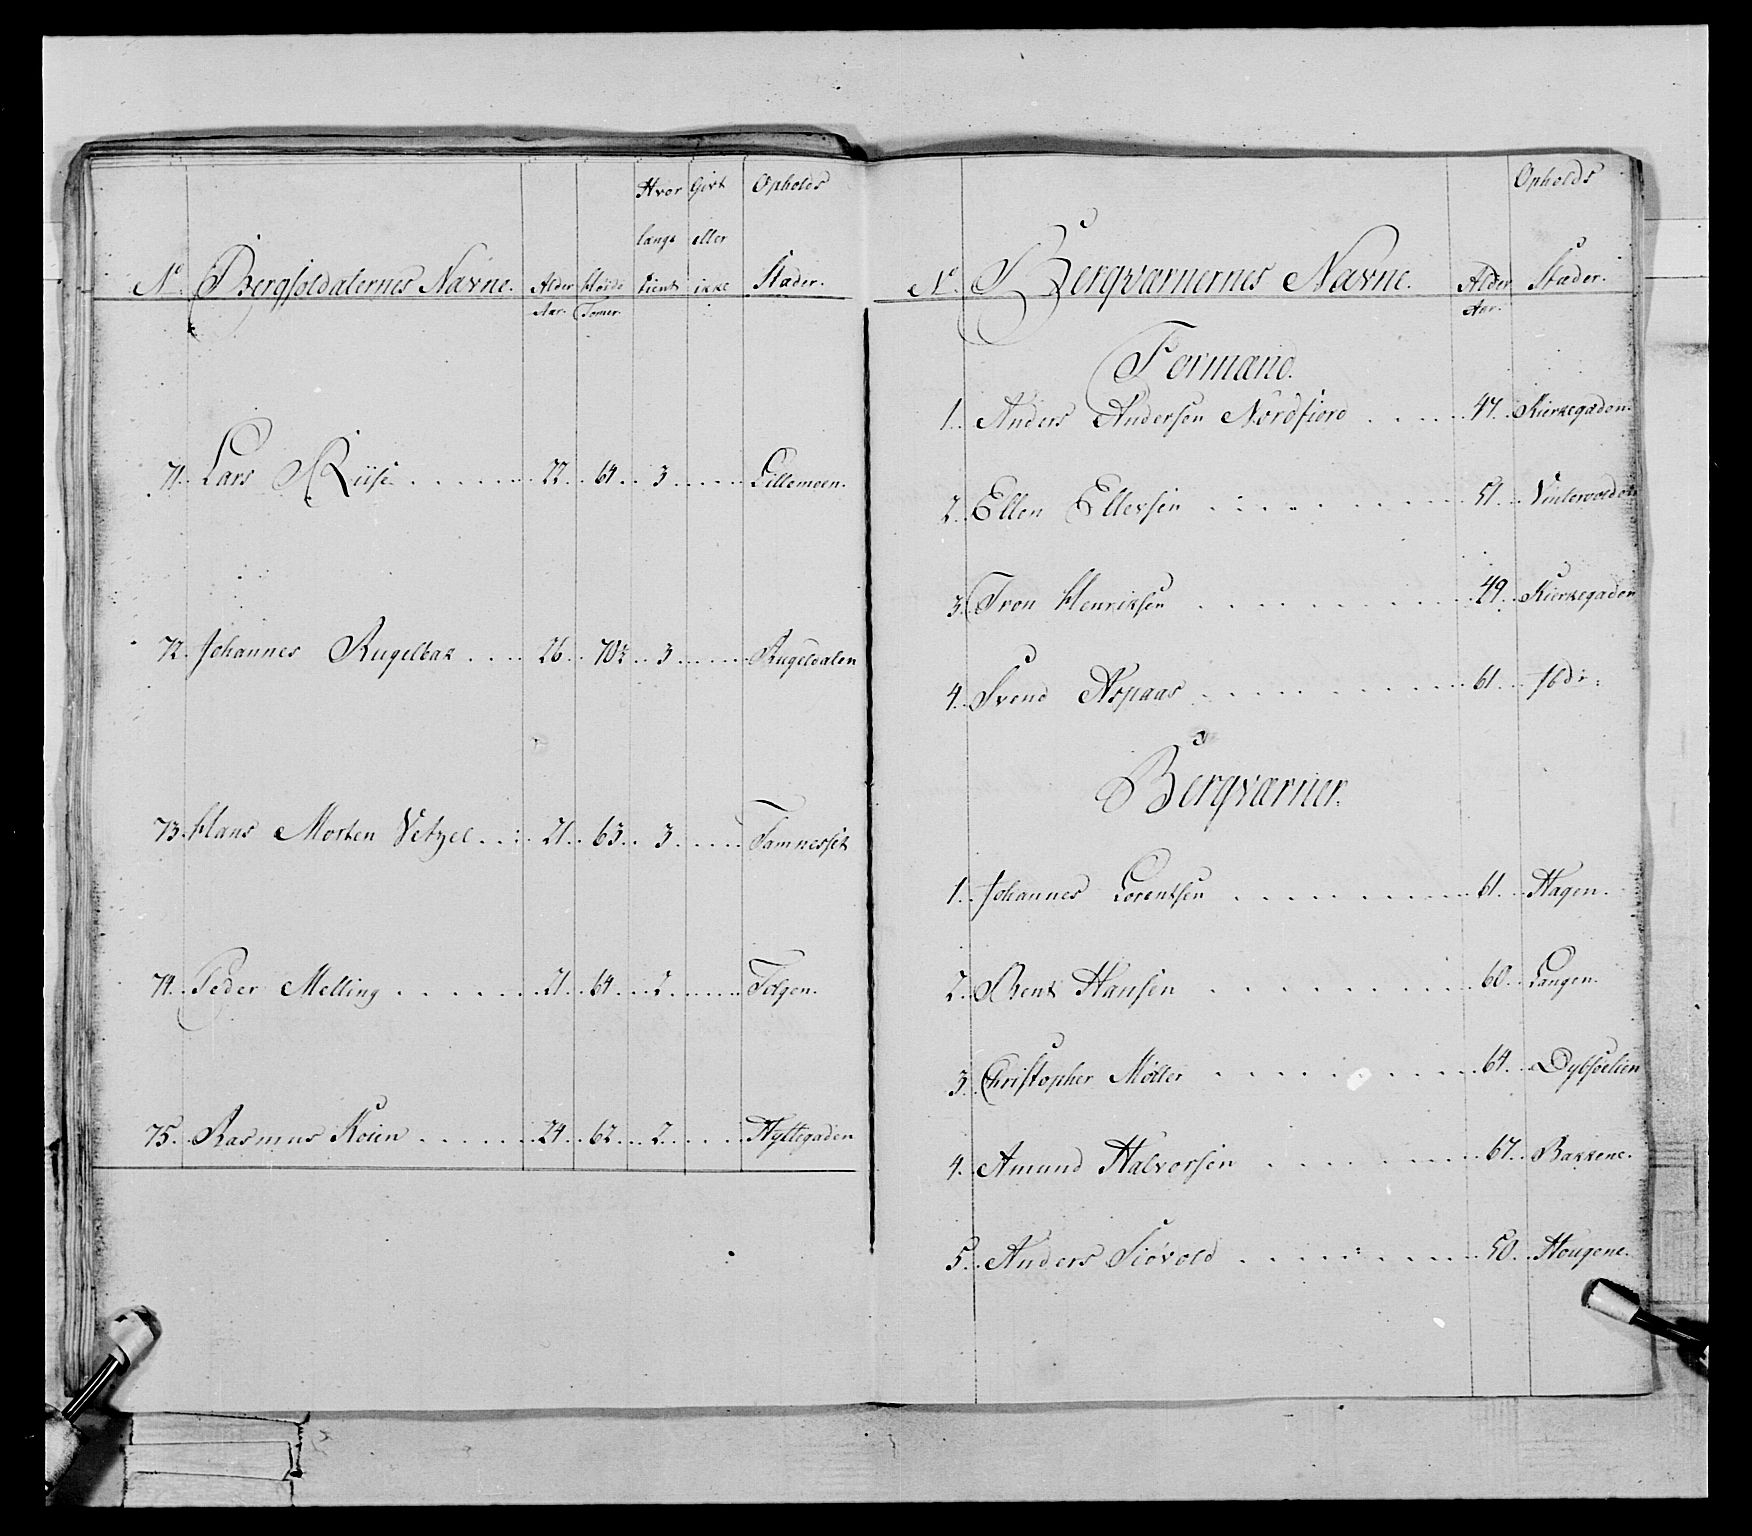 Hvor Givt Opholds
længe eller
No. Bergsoldaternes Navne. Alder Høide tient ikke Stæder.
Aar. Tomer.
71. Lars Riise . . . . . . 22. 64. 3. Lillemoen.
72. Johannes Rugelbak . . . . 26. 70½. 3. Rugeldalen
73. Hans Morten Vetzel . . : 21. 63. 3. Tamnesset
74. Peder Melling . . . . . . 21. 64. 2. Tolgen.
75. Rasmus Koien . . . . . . 24. 62. 2. Hyttegaden
Opholds
No. Bergværnernes Navne. Alder Stæder.
Aar.
Formænd.
1. Anders Andersen Nordfiord . . . . 47. Kierkegaden.
2. Ellen Ellevsen . . . . . . 51. Vintervolden
3. Tron Henriksen . . . . . . 49. Kierkegaden
4. Svend Aspaas . . . . . . 61. Ibd:
Bergværner.
1. Johannes Lorentsen . . . . . . 61. Hagen.
2. Bent Hansen . . . . . . 60. Langen.
3. Christopher Møller . . . . . . 64. Dybsøelien
4. Amund Halvorsen . . . . . . 67. Bakkene.
5. Anders Siøvold . . . . . . 50. Hougene.